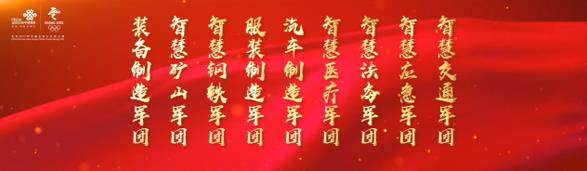 智慧交通军团
智慧应急军团
智慧法务军团
智慧医疗军团
汽车制造军团
服装制造军团
智慧钢铁军团
智慧矿山军团
装备制造军团